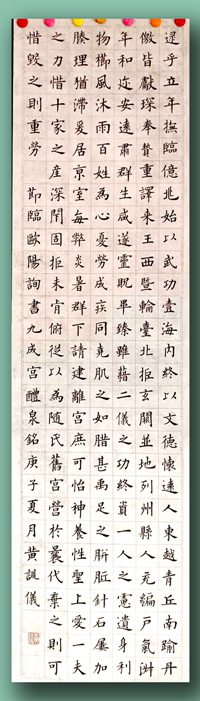 逮乎立年撫臨億兆始以武功壹海內終以文德懷遠人東越青丘南踰丹
儌皆獻琛奉贄重譯来王西暨輪臺北拒玄闕並地列州縣人充編戶氣淑
年和迩安遠肅群生咸遂靈貺畢臻雖藉二儀之功終資一人之慮遺身利
物櫛風沐雨百姓為心憂勞成疾同堯肌之如腊甚禹足之胼胝針石屢加
腠理猶滯爰居京室每弊炎暑群下請建離宮庶可怡神養性聖上愛一夫
之力惜十家之産深閉固拒未肯俯從以為随氏舊宮營於曩代棄之則可
惜毀之則重勞 節臨歐陽詢書九成宮醴泉銘庚子夏月黃詵儀